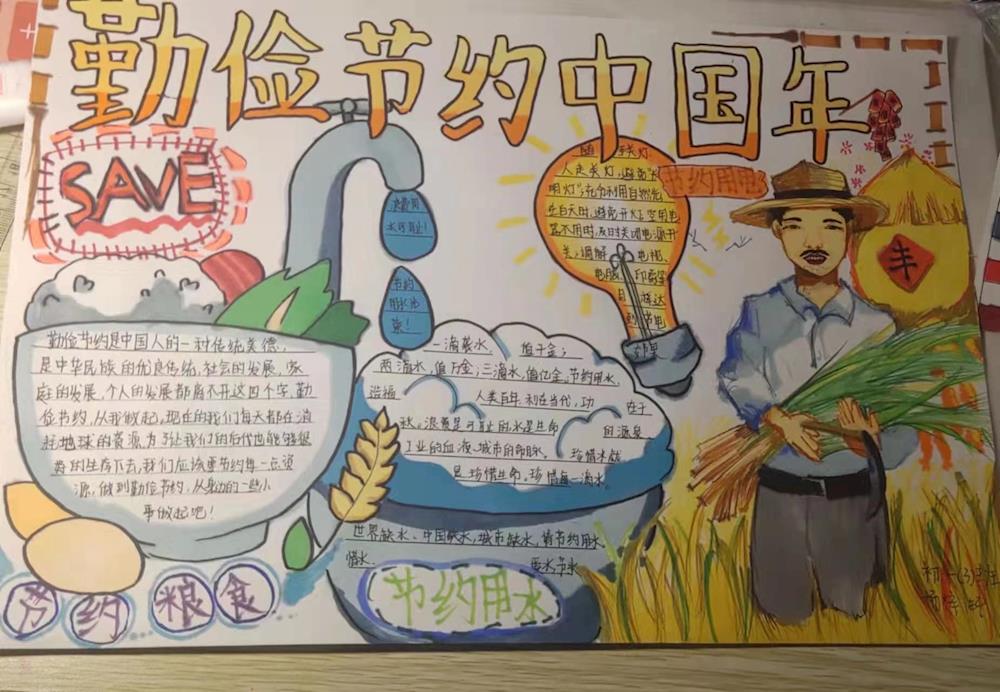 勤俭节约中国年
SAVE
浪费用
水可耻!
节约
用水光
荣!
随手关灯
人走关灯,避免"长
明灯";充分利用自然光
在白天时,避免开灯;空用电
器不用时,及时关闭电源开
关;调解 电视、
电脑、印刷等
节约用电
丰
勤俭节约是中国人的一种传统美德,
是中华民族的优良传统,社会的发展、家
庭的发展,个人的发展都离不开这四个字,勤
俭节约,从我做起,现在的我们每天都在消
耗地球的资源,为了让我们的后代也能够很
好的生存下去,我们应该要节约每一点资
源,做到勤俭节约,从身边的一些小
事做起吧!
一滴藏水 值千金;
两滴水,值万金;三滴水,值亿金。节约用水,
造福 人类百年 利在当代,功 在于
秋。浪费是可耻的水是生命 的源泉
工业的血液、城市的命脉、 珍惜水就
是珍惜生命,珍惜每一滴水。
世界缺水、中国缺水,城市缺水,请节约用水
惜水
节约用水
节约粮食
初一(3)班